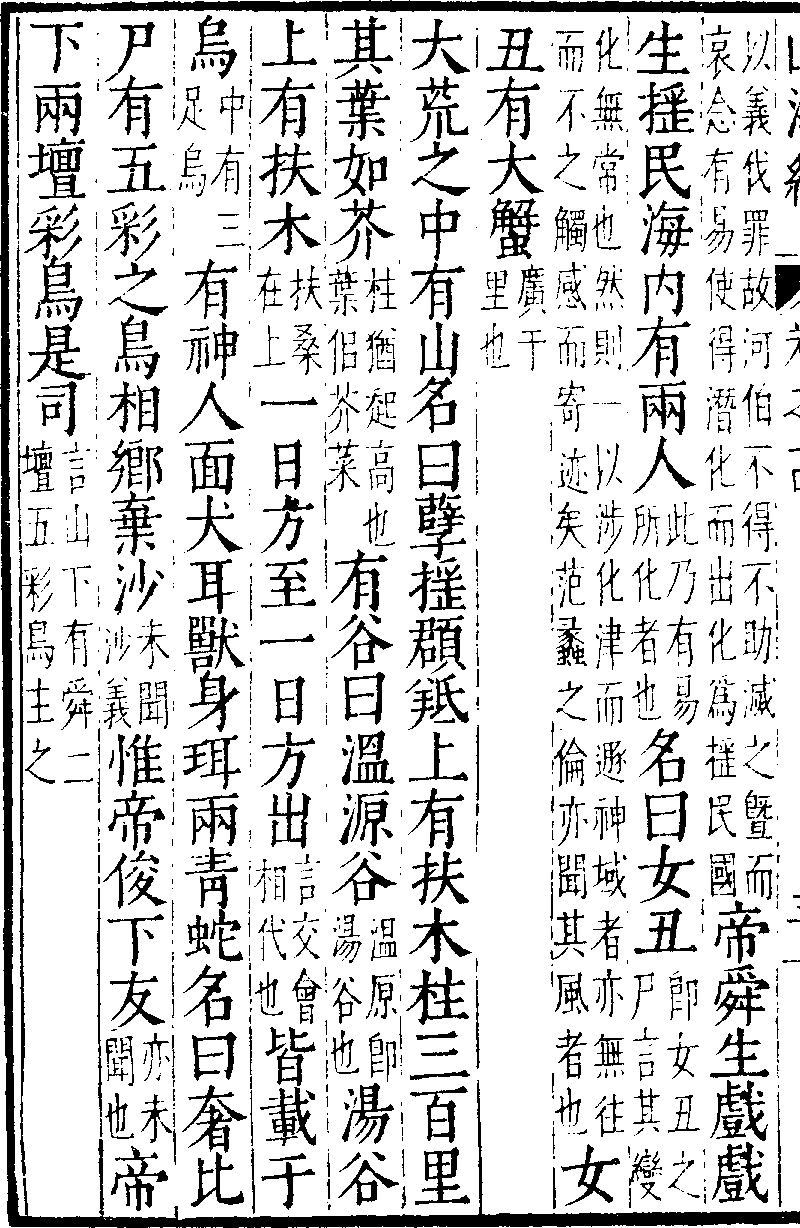 以義伐罪故河伯不得不助滅之暨而哀念有易使得潛化而出化爲揺民國帝舜生戲戲
生揺民海内有兩人此乃有易所化者也名曰女丑即女丑之尸言其變
化無常也然則一以涉化津而遯神域者亦無往而不之觸感而寄迹矣范蠡之倫亦聞其風者也女
丑有大蟹廣千里也
大荒之中有山名曰孽揺頵羝上有扶木柱三百里
其葉如芥柱猶起高也葉佀芥菜有谷曰溫源谷溫原即湯谷也湯谷
上有扶木扶桑在上一日方至一日方出言交會相代也皆載于
烏中有三足烏有神人面犬耳獸身珥兩靑蛇名曰奢比
尸有五彩之鳥相鄉棄沙未聞沙義惟帝俊下友亦未聞也帝
下兩壇彩鳥是司言山下有舜二壇五彩鳥主之